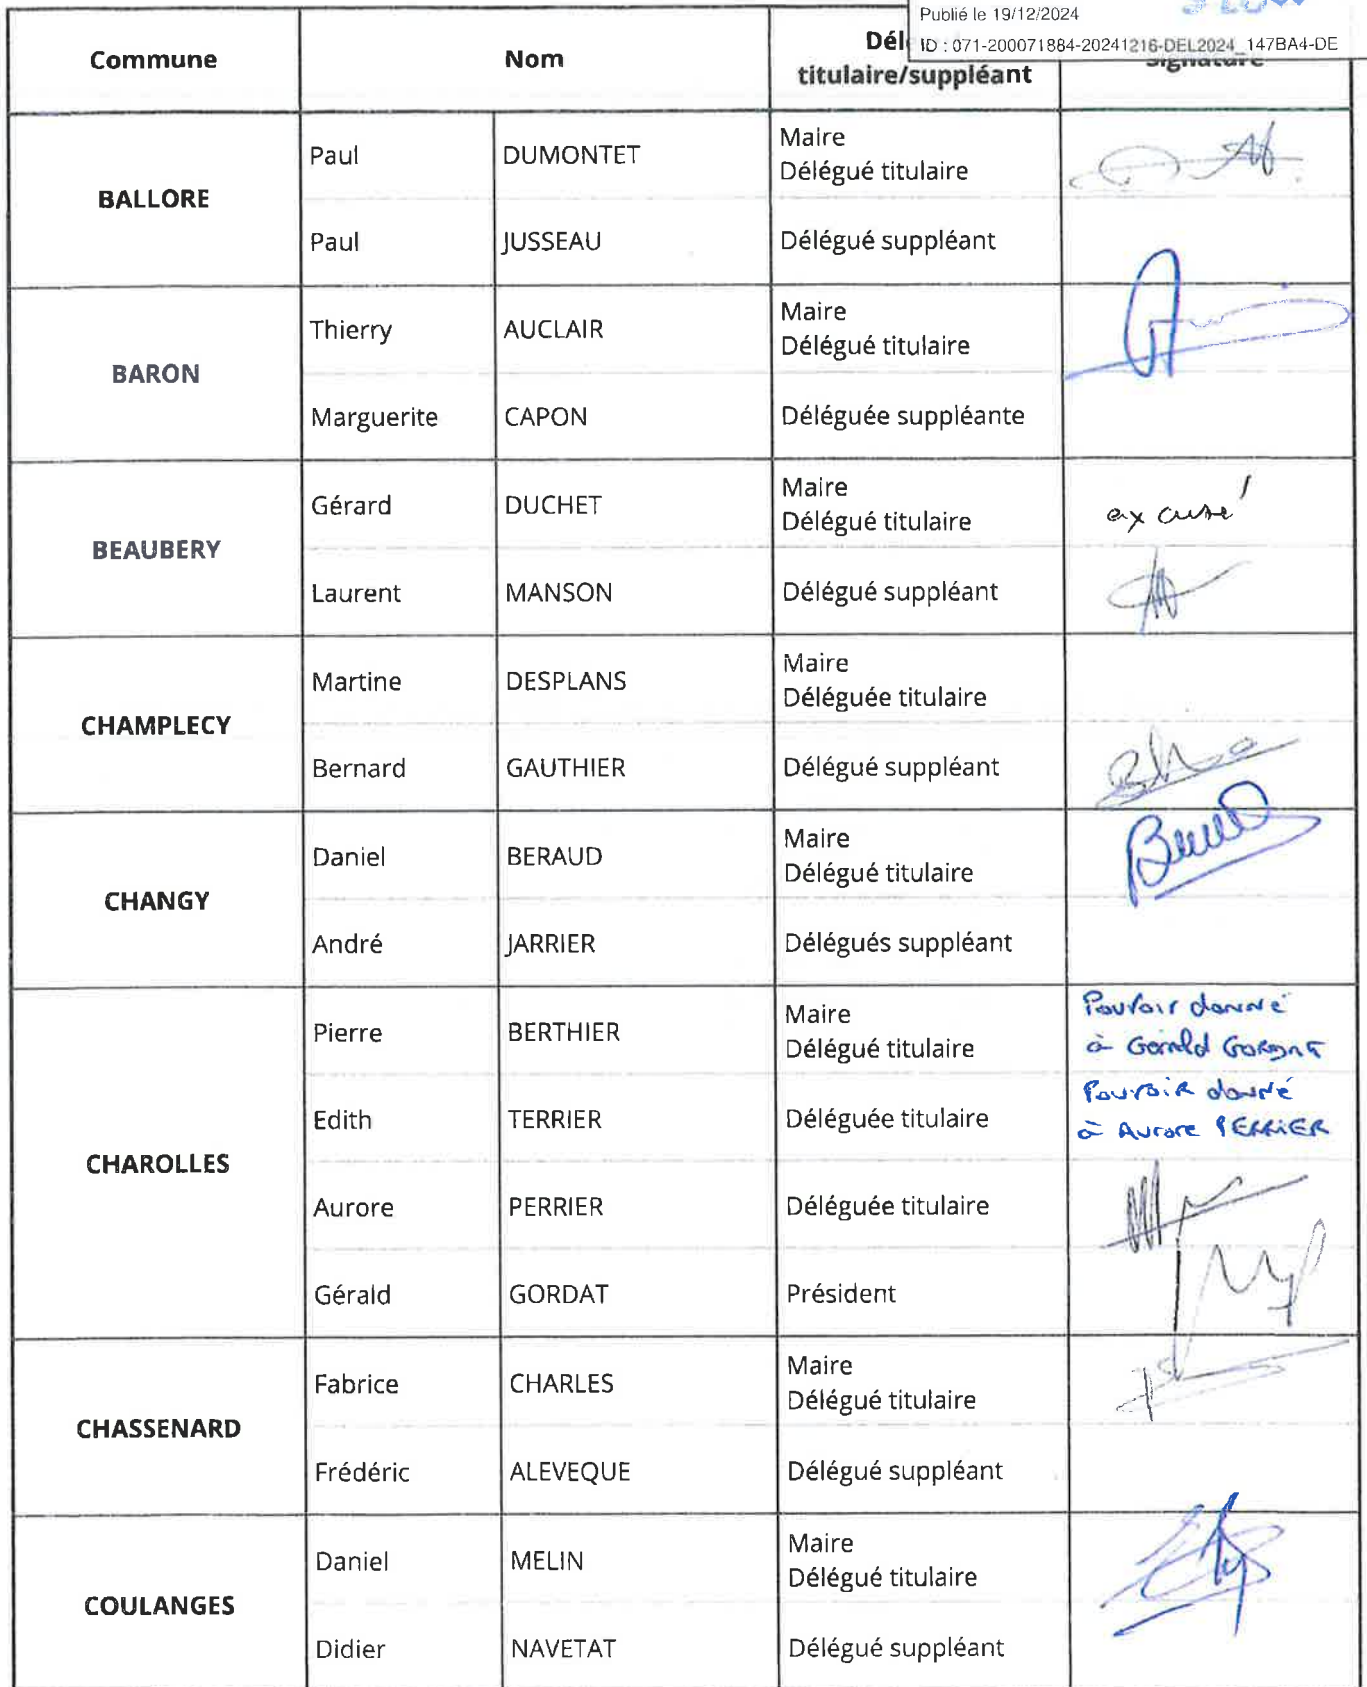 Publié le 19/12/2024
ID : 071-200071884-20241216-DEL2024_147BA4-DE
Commune Nom Dél
titulaire/suppléant Signature
BALLORE
Paul DUMONTET Maire
Délégué titulaire
Paul JUSSEAU Délégué suppléant
BARON
Thierry AUCLAIR Maire
Délégué titulaire
Marguerite CAPON Déléguée suppléante
BEAUBERY
Gérard DUCHET Maire
Délégué titulaire excusé
Laurent MANSON Délégué suppléant
CHAMPLECY
Martine DESPLANS Maire
Déléguée titulaire
Bernard GAUTHIER Délégué suppléant
CHANGY
Daniel BERAUD Maire
Délégué titulaire
André JARRIER Délégués suppléant
CHAROLLES
Pierre BERTHIER Maire
Délégué titulaire
Pouvoir donné
à Gérald GORDAT
Edith TERRIER Déléguée titulaire
Pouvoir donné
à Aurore PERRIER
Aurore PERRIER Déléguée titulaire
Gérald GORDAT Président
CHASSENARD
Fabrice CHARLES Maire
Délégué titulaire
Frédéric ALEVEQUE Délégué suppléant
COULANGES
Daniel MELIN Maire
Délégué titulaire
Didier NAVETAT Délégué suppléant